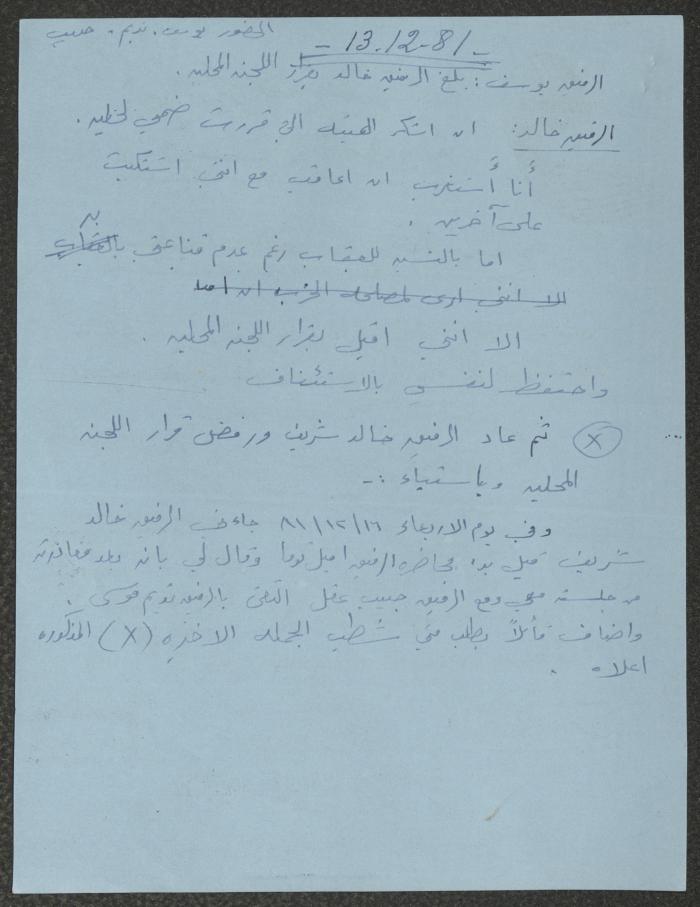 الحضور يوسف. نديم. حبيب
- 13.12-81 -
الرفيق يوسف: بلغ الرفيق خالد بقرار اللجنه المحليه.
الرفيق خالد: ان اشكر الهيئه التي قررت ضمي لخليه.
أنا أستغرب ان اعاقب مع انني اشتكيت
على آخرين.
اما بالنسبه للعقاب رغم عدم قناعتي بالعقاب به
الا انني ارى لمصلحه الحزب ان
الا انني اقبل بقرار اللجنه المحليه.
واحتفظ لنفسي بالاستئناف
(X) ثم عاد الرفيق خالد شريف ورفض قرار اللجنه
المحليه وباستياء :-
وفي يوم الاربعاء ٨١/١٢/١٦ جاءني الرفيق خالد
شريف قبيل بدء محاضره الرفيق اميل توما وقال لي بانه بعد مغادرته
من جلسته معي ومع الرفيق حبيب عقل التقى بالرفيق نديم موسى.
واضاف قائلاً يطلب مني شطب الجمله الاخيره (X) المذكوره
اعلاه.